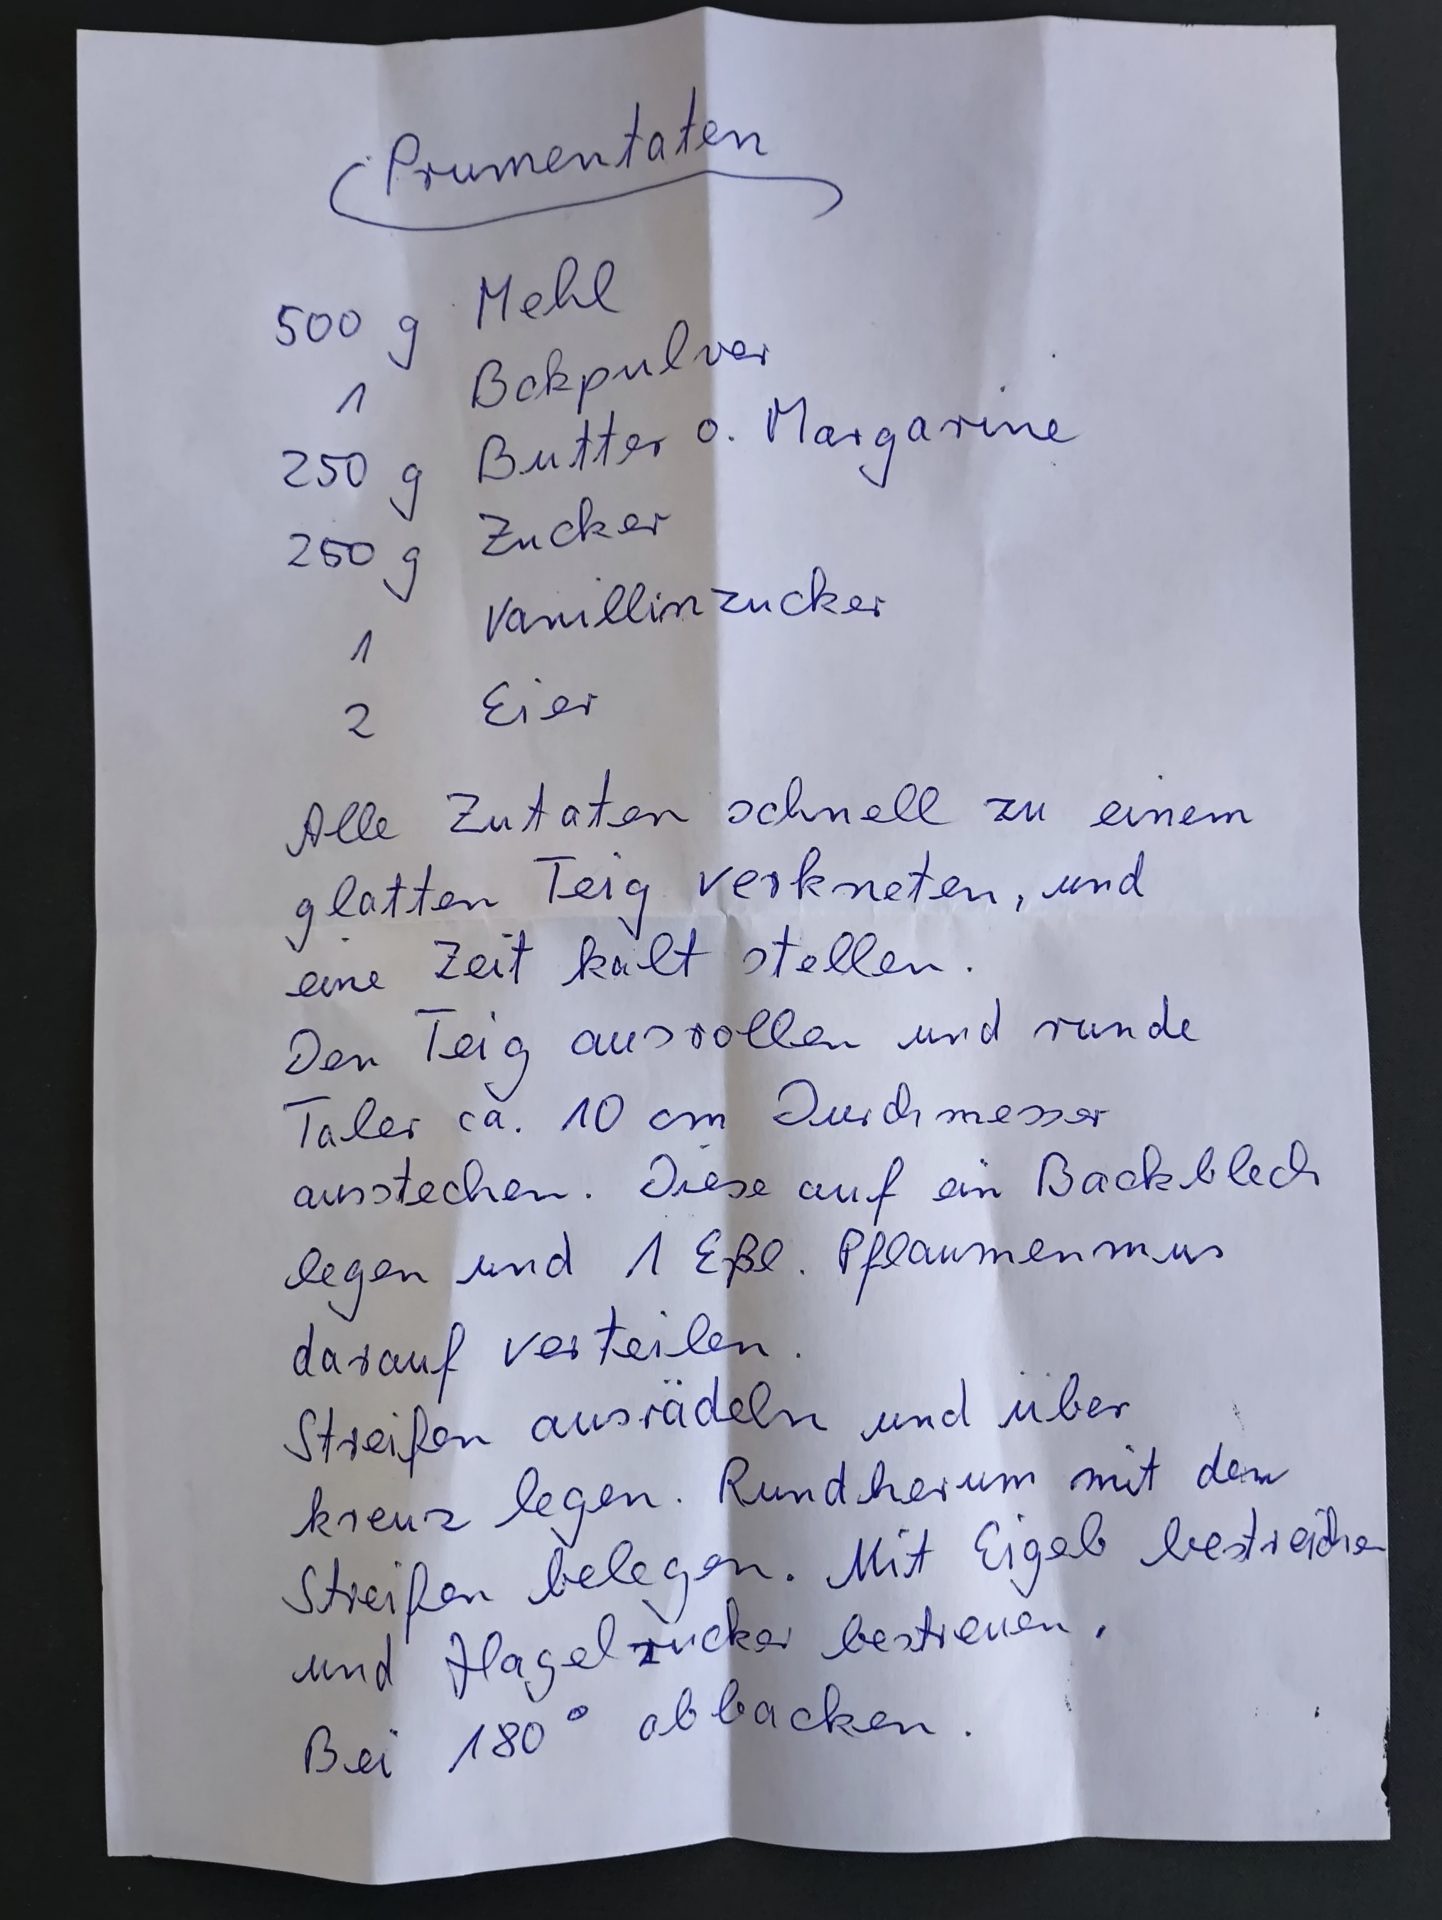 Prumentaten
500 g Mehl
1 Backpulver
250 g Butter o. Margarine
250 g Zucker
1 Vanillinzucker
2 Eier
Alle Zutaten schnell zu einem
glatten Teig verkneten, und
eine Zeit kalt stellen.
Den Teig ausrollen und runde
Taler ca. 10 cm Durchmesser
ausstechen. Diese auf ein Backblech
legen und 1 Eßl. Pflaumenmus
darauf verteilen.
Streifen ausrädeln und über
kreuz legen. Rundherum mit den
Streifen belegen. Mit Eigelb bestreichen
und Hagelzucker bestreuen.
Bei 180° abbacken.